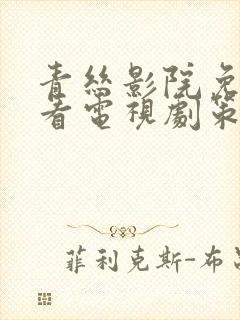 青絲影院免
看電視劇策
菲利克斯-布呂